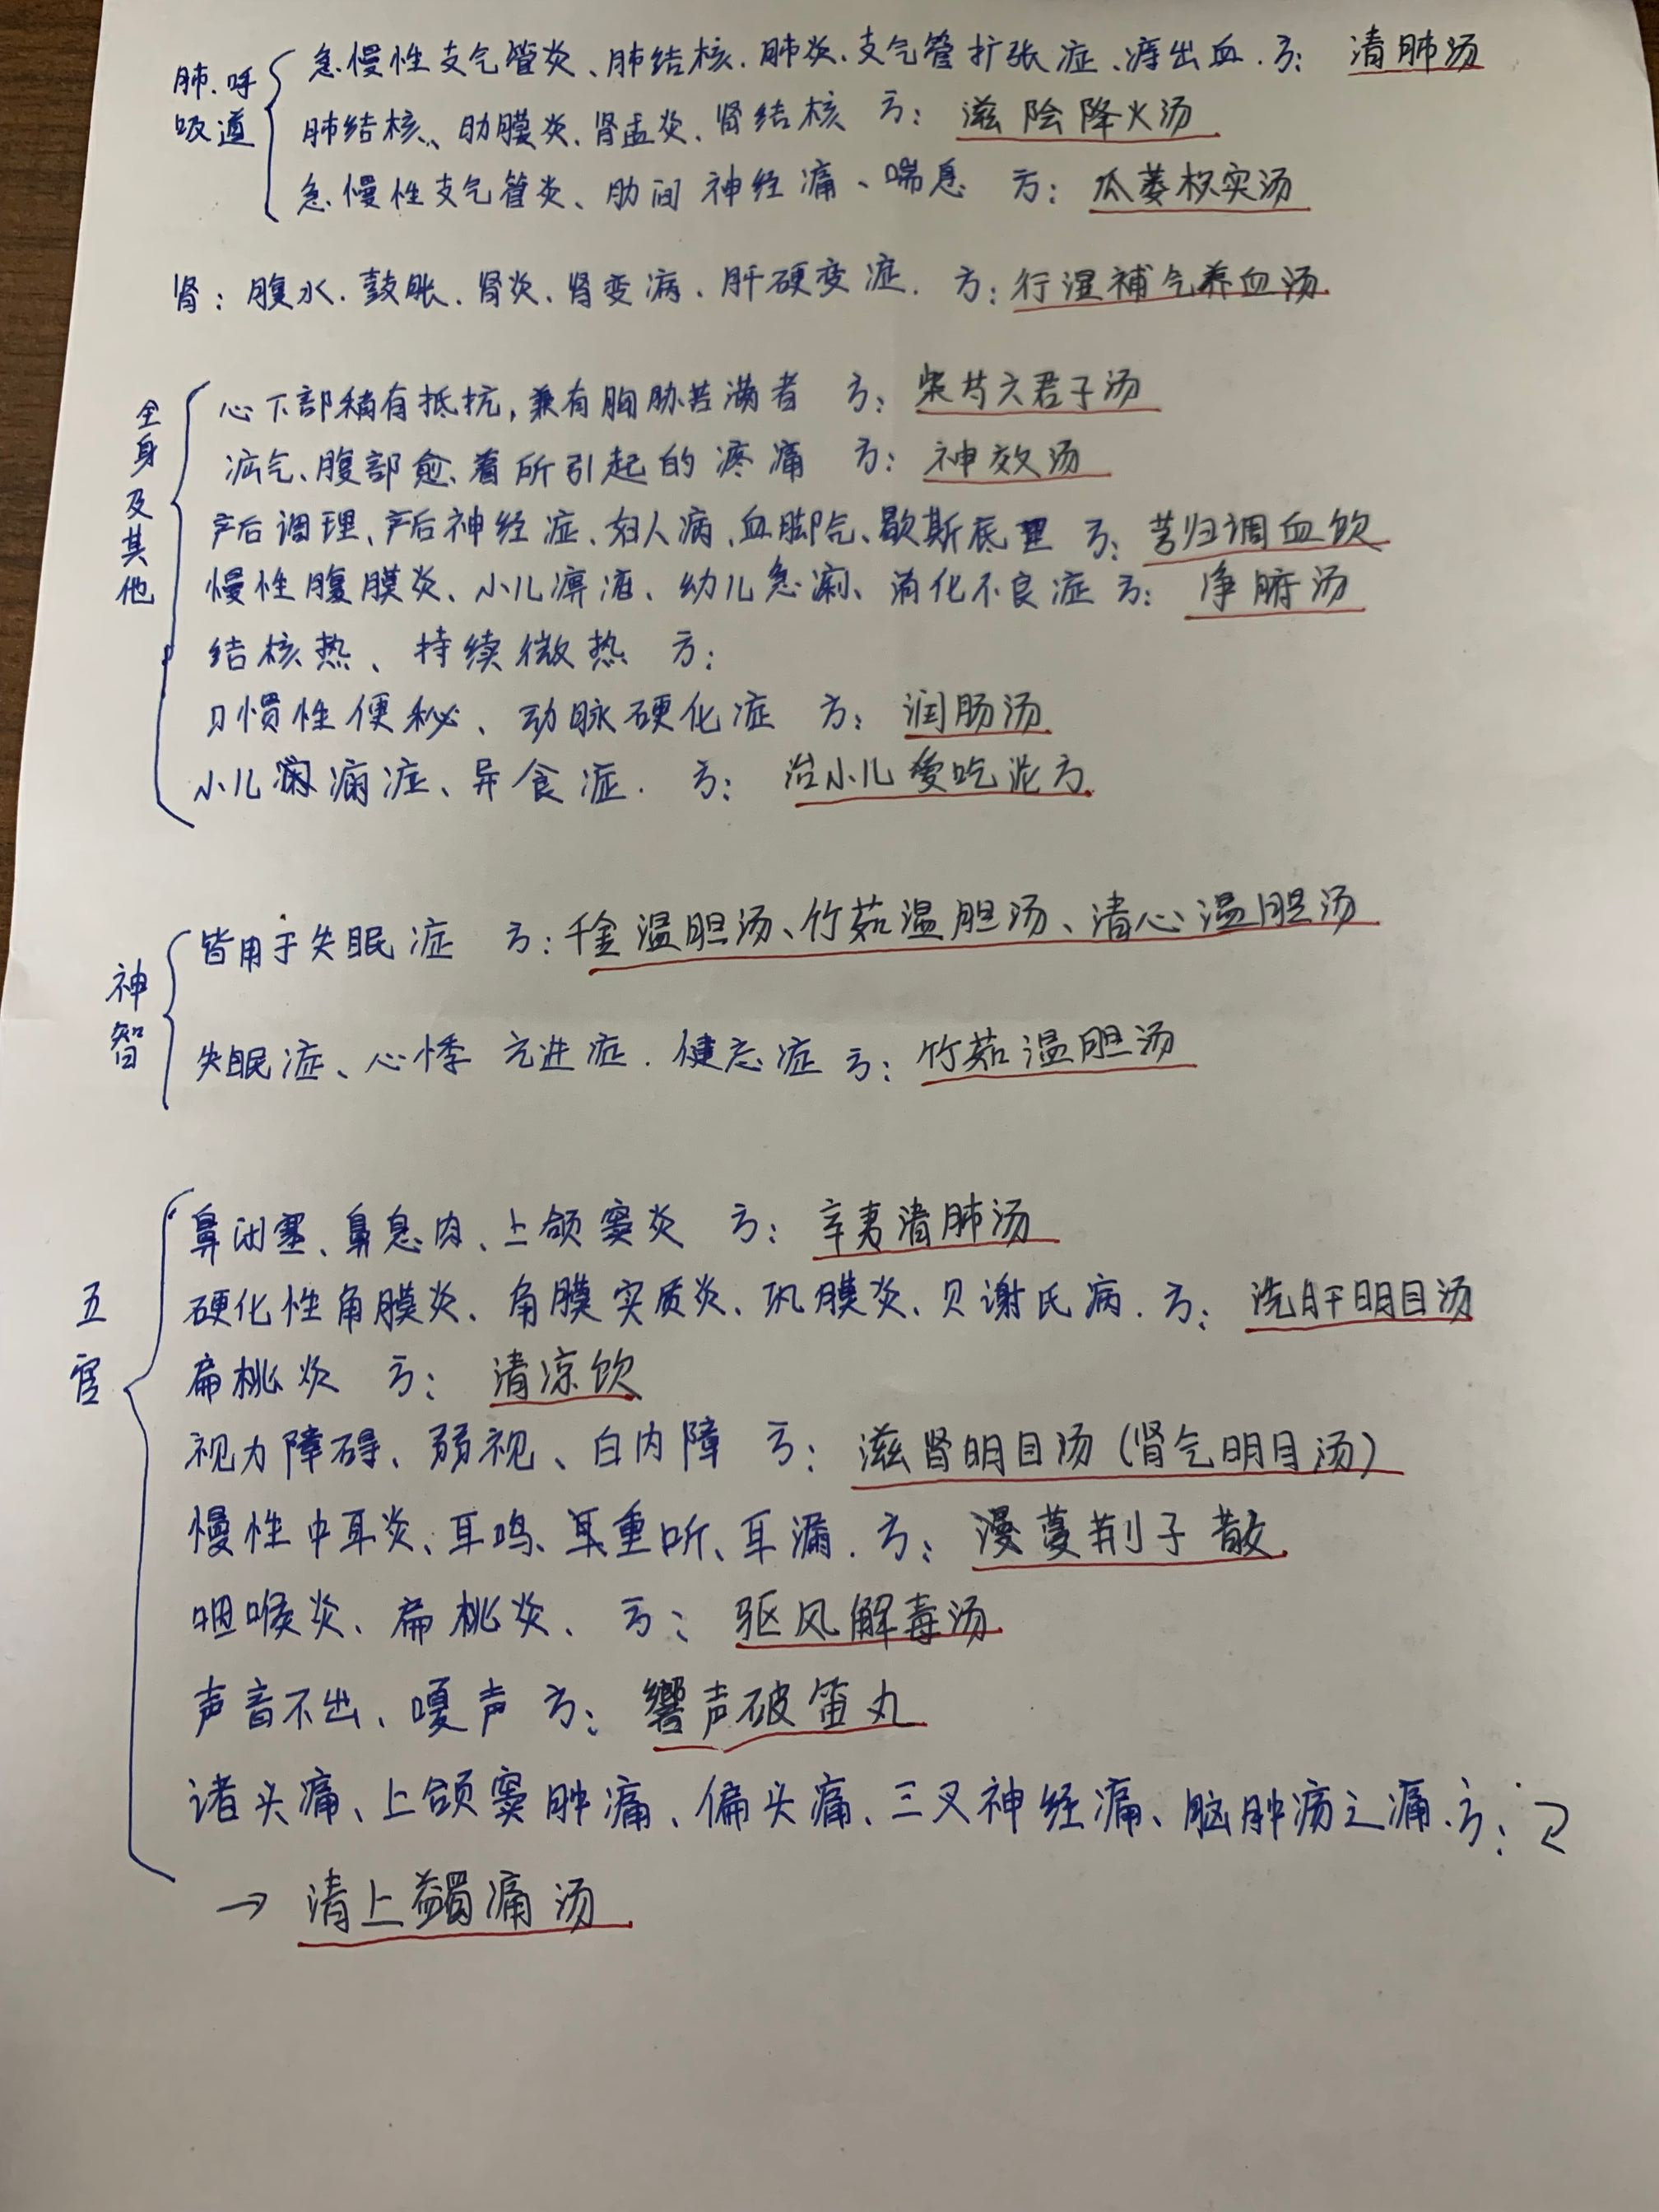 肺、呼吸道
急慢性支气管炎、肺结核、肺炎、支气管扩张症、痔出血、方：清肺汤
肺结核、肋膜炎、肾盂炎、肾结核 方：滋阴降火汤
急慢性支气管炎、肋间神经痛、喘息 方：瓜蒌枳实汤
肾：腹水、鼓胀、肾炎、肾变病、肝硬变症. 方：行湿補气养血汤
全身及其他
心下部稍有抵抗，兼有胸胁苦满者 方：柴芍六君子汤
疝气、腹部愈着所引起的疼痛 方：神效汤
产后调理、产后神经症、妇人病、血脚气、歇斯底里 方：芎归调血饮
慢性腹膜炎、小儿 幼儿急痫、消化不良症 方：净腑汤
结核热、持续微热 方：
习惯性便秘、动脉硬化症 方：润肠汤
小儿 症、异食症. 方：治小儿爱吃泥方
神智
皆用于失眠症 方：千金温胆汤、竹茹温胆汤、清心温胆汤
失眠症、心悸亢进症、健忘症 方：竹茹温胆汤
五官
鼻闭塞、鼻息肉、上颌窦炎 方：辛夷清肺汤
硬化性角膜炎、角膜实质炎、巩膜炎、贝谢氏病. 方：洗肝明目汤
扁桃炎 方：清凉饮
视力障碍、弱视、白内障 方：滋肾明目汤（肾气明目汤）
慢性中耳炎、耳鸣、耳重听、耳漏. 方：蔓荆子散
咽喉炎、扁桃炎、方：驱风解毒汤
声音不出、嗄声 方：響声破笛丸
诸头痛、上颌窦肿痛、偏头痛、三叉神经痛、脑肿疡之痛、方：
→ 清上蠲痛汤